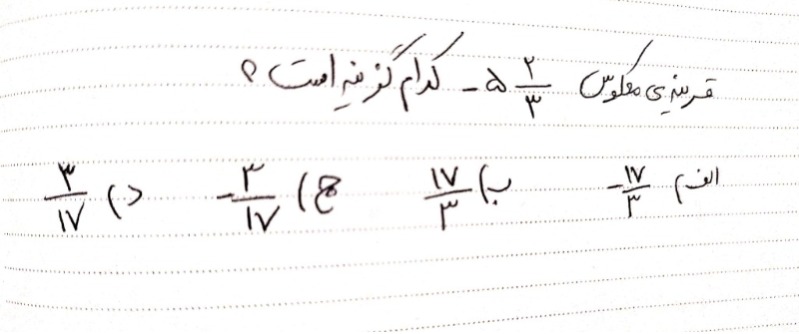 قرینه‌ی معکوس -۵ ۲/۳ کدام گزینه است؟
الف) -۱۷/۳ ب) ۱۷/۳ ج) -۳/۱۷ د) ۳/۱۷